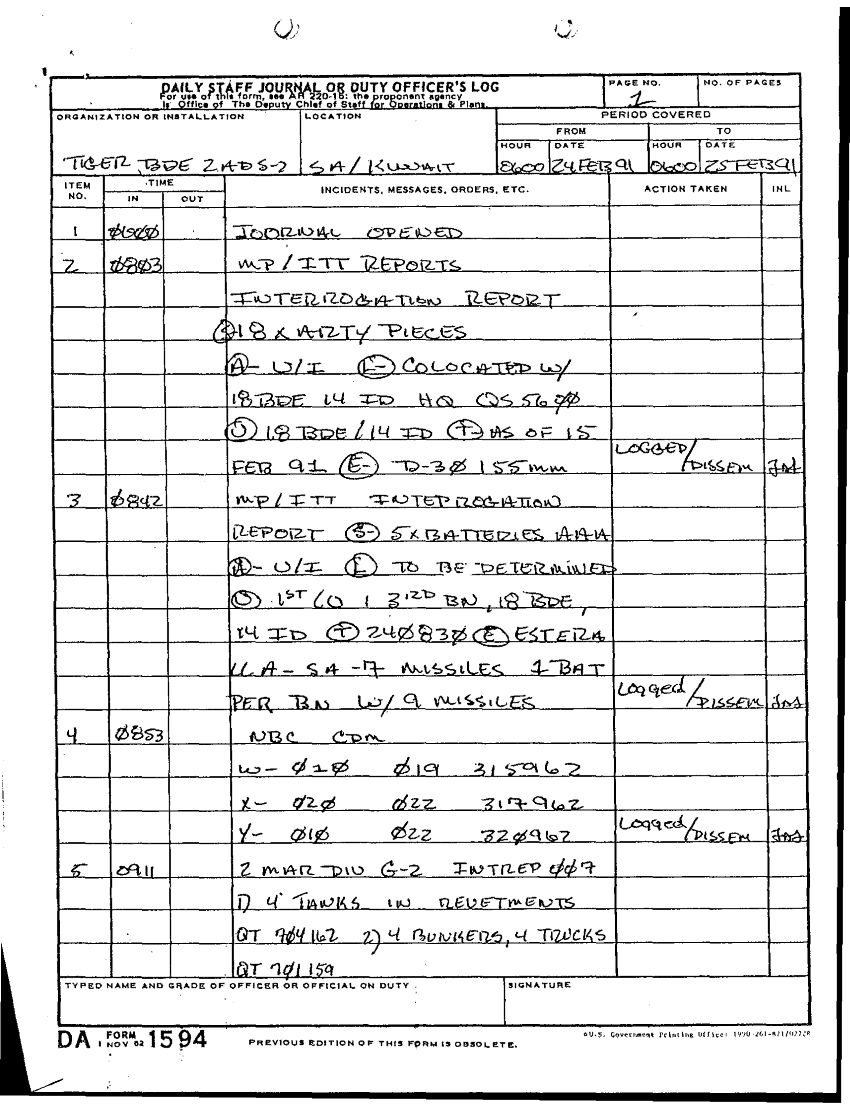 DAILY STAFF JOURNAL OR DUTY OFFICER'S LOG
For use of this form, see AR 220-15: the proponent agency
is Office of The Deputy Chief of Staff for Operations & Plans.
PAGE NO.
1
NO. OF PAGES
ORGANIZATION OR INSTALLATION
LOCATION
PERIOD COVERED
FROM
TO
HOUR DATE HOUR DATE
TIGER BDE 2AD S-2 SA/KUWAIT 0600 24FEB91 0600 25FEB91
ITEM NO. TIME INCIDENTS, MESSAGES, ORDERS, ETC. ACTION TAKEN INL
IN OUT
1 0600 JOURNAL OPENED
2 0803 MP/ITT REPORTS
INTERROGATION REPORT
18 X ARTY PIECES
A- U/I L- COLOCATED W/
18 BDE 14 ID HQ QS 5600
U 18 BDE/14 ID T- AS OF 15
FEB 91 E- D-30 155mm LOGGED/DISSEM
3 0842 MP/ITT INTERROGATION
REPORT S- 5 X BATTERIES AAA
A- U/I L TO BE DETERMINED
1ST CO 1 3RD BN, 18 BDE,
14 ID T 240830 E ESTERA
LLA - SA-7 MISSILES 1 BAT
PER BN W/ 9 MISSILES Logged/DISSEM
4 0853 NBC CDM
W- 010 019 315962
X- 020 022 317962
Y- 010 022 320962 Logged/DISSEM
5 0911 2 MAR DIV G-2 INTREP 007
1) 4 TANKS IN REVETMENTS
QT 704162 2) 4 BUNKERS, 4 TRUCKS
QT 701159
TYPED NAME AND GRADE OF OFFICER OR OFFICIAL ON DUTY SIGNATURE
DA FORM 1 NOV 62 1594 PREVIOUS EDITION OF THIS FORM IS OBSOLETE.
U.S. Government Printing Office: 1990-261-871/